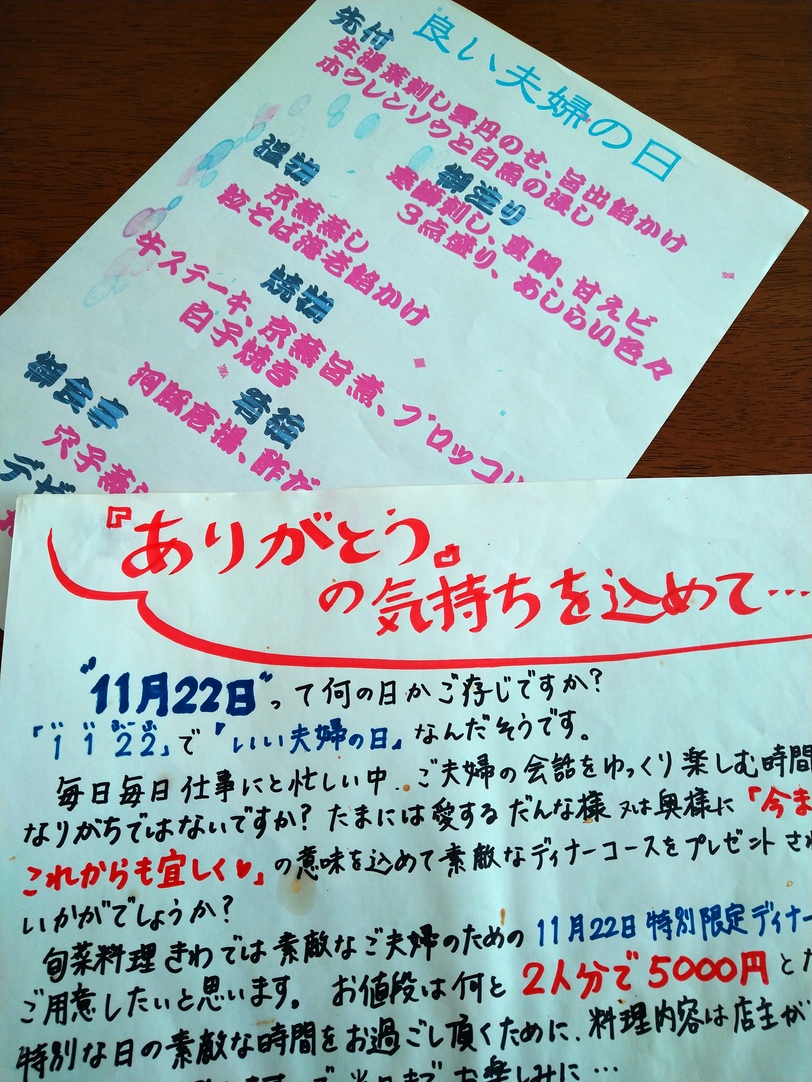 良い夫婦の日
先付
生湯葉刺し雲丹のせ、旨出餡かけ
ホウレンソウと白魚の浸し
御造り
寒鰤刺し、真鯛、甘えビ
3点盛り、あしらい色々
温物
京蕪蒸し
粒そば海老餡かけ
焼物
牛ステーキ、京蕪旨煮、ブロッコリ
白子焼き
肴箱
河豚唐揚、酢だ
御食事
穴子蒸し
デザ
『ありがとう』
の気持ちを込めて…
"11月22日"って何の日かご存じですか?
「1122」で『いい夫婦の日』なんだそうです。
いい ふうふ
毎日毎日仕事にと忙しい中、ご夫婦の会話をゆっくり楽しむ時間
なりがちではないですか?たまには愛するだんな様又は奥様に「今ま
これからも宜しく♥」の意味を込めて素敵なディナーコースをプレゼントされ
いかがでしょうか?
旬菜料理きわでは素敵なご夫婦のための11月22日特別限定ディナー
ご用意したいと思います。お値段は何と2人分で5000円とな
特別な日の素敵な時間をお過ごし頂くために、料理内容は店主が
当日までお楽しみに…